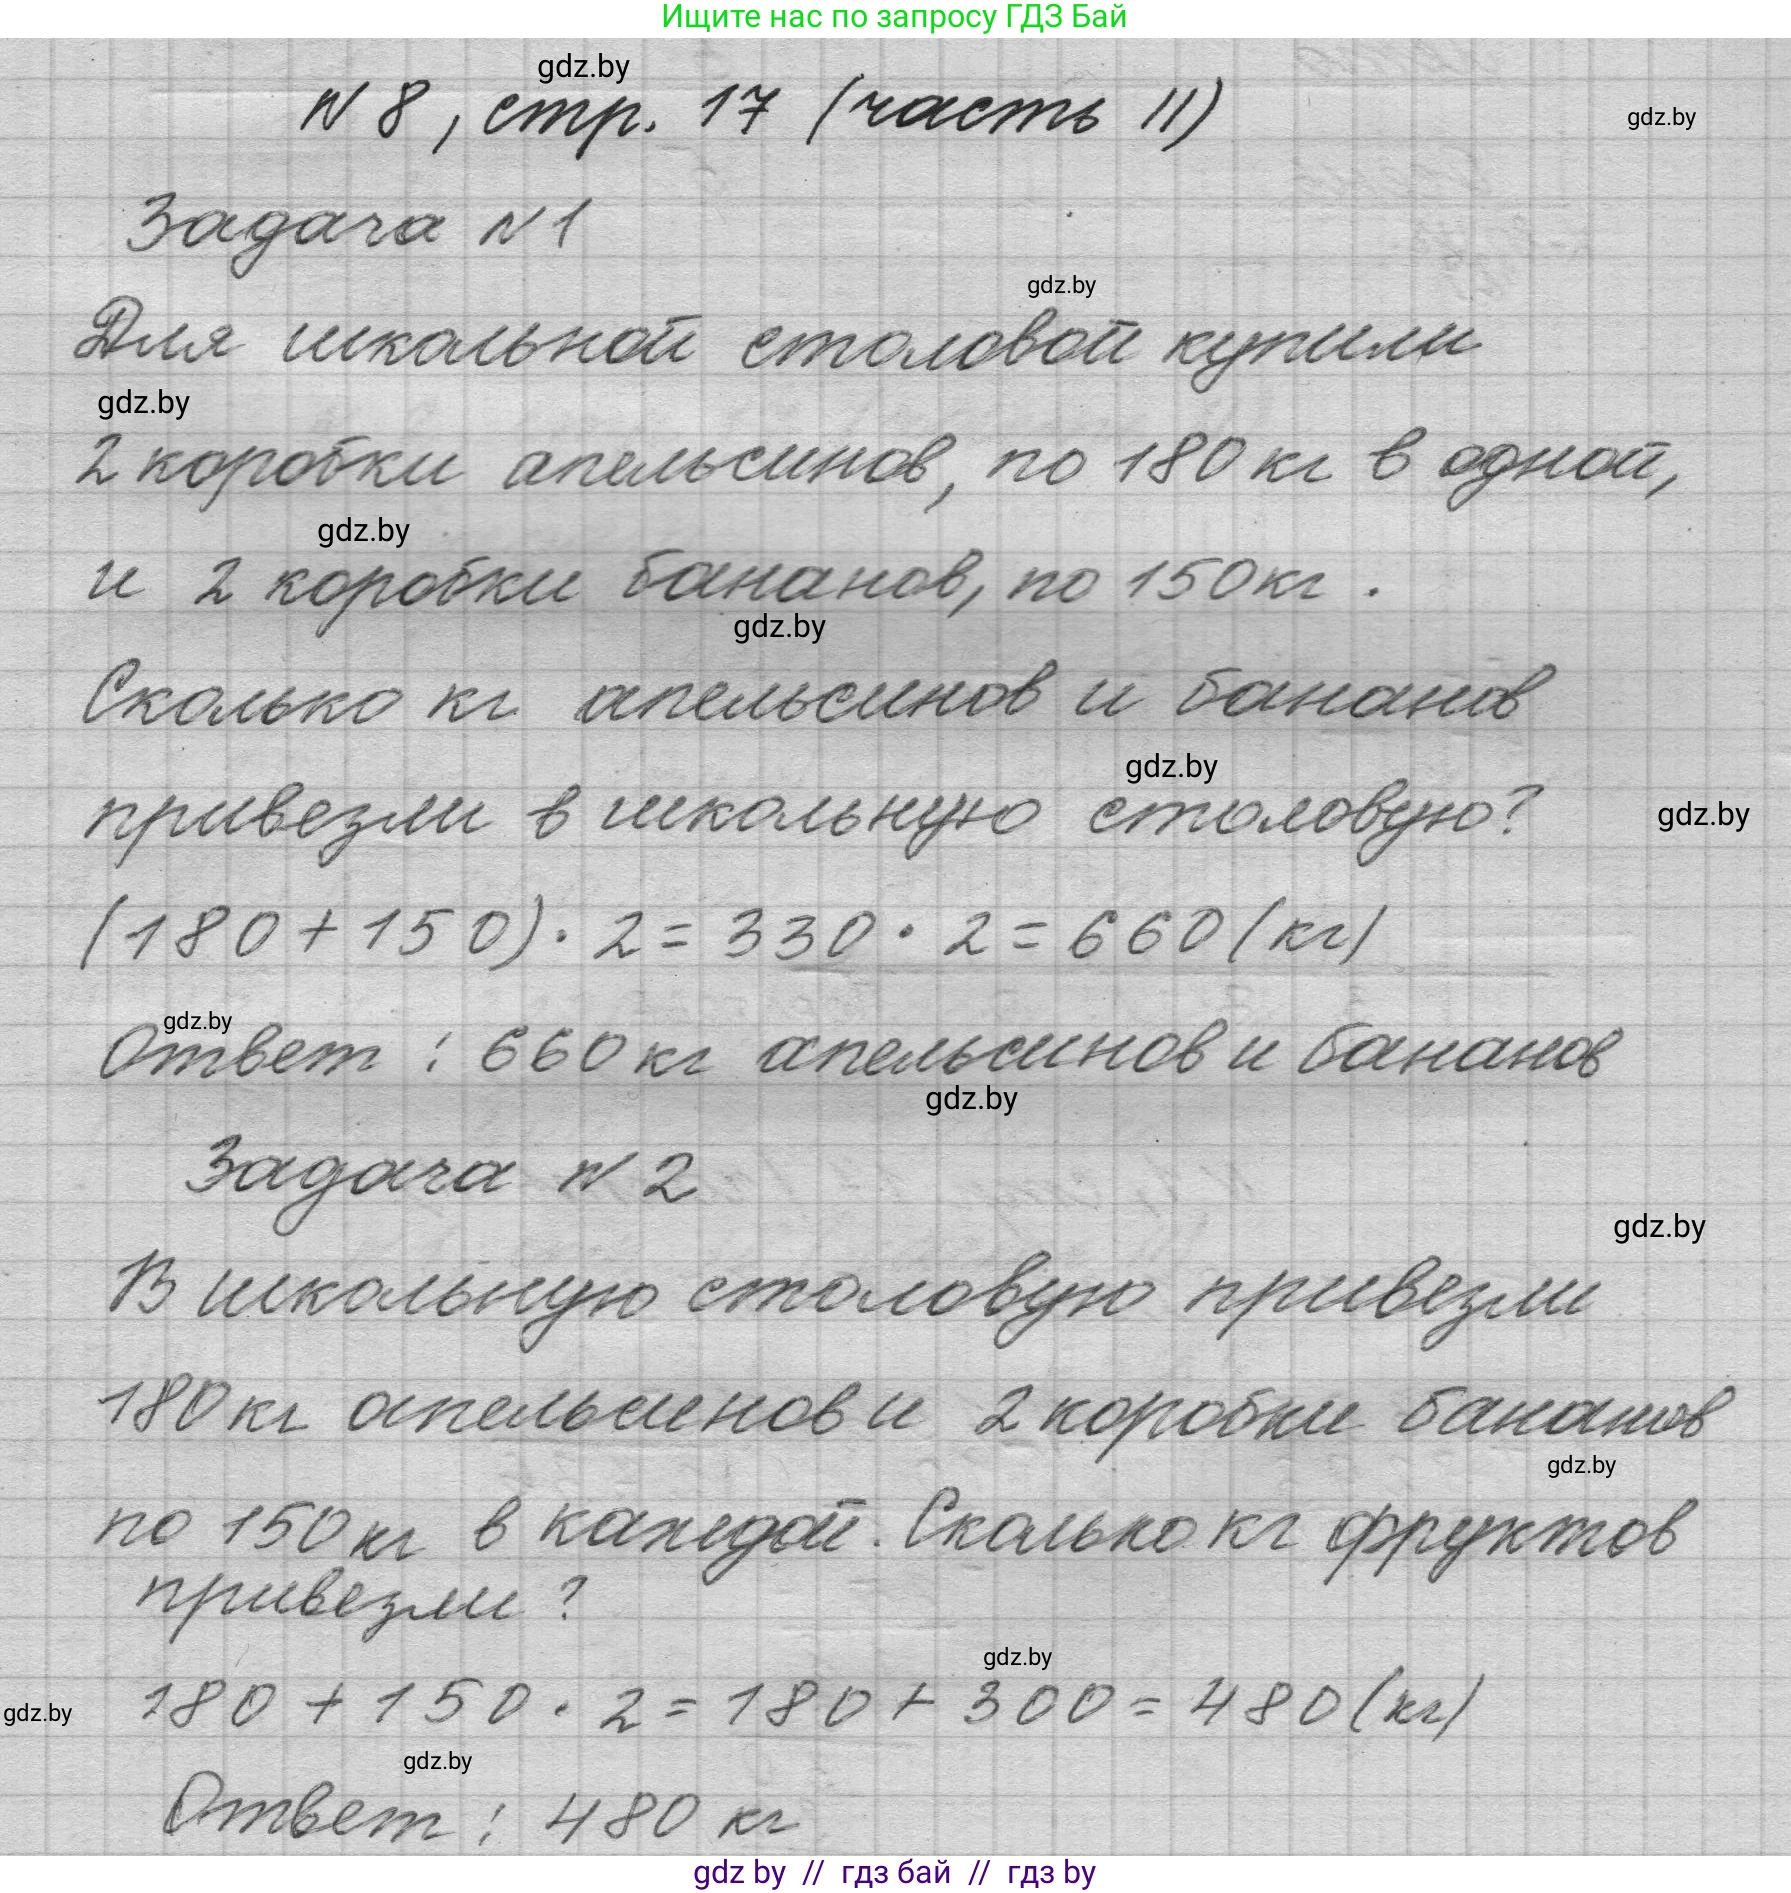 Ищите нас по запросу ГДЗ Бай
gdz.by
N 8, стр. 17 (часть II)
gdz.by
Задача N 1
gdz.by
Для школьной столовой купили
gdz.by
2 коробки апельсинов, по 180 кг в одной,
gdz.by
и 2 коробки бананов, по 150 кг.
gdz.by
Сколько кг апельсинов и бананов
gdz.by
привезли в школьную столовую?
gdz.by
(180 + 150) · 2 = 330 · 2 = 660 (кг)
gdz.by
Ответ: 660 кг апельсинов и бананов
gdz.by
Задача N 2
gdz.by
В школьную столовую привезли
180 кг апельсинов и 2 коробки бананов
gdz.by
по 150 кг в каждой. Сколько кг фруктов
привезли?
gdz.by
180 + 150 · 2 = 180 + 300 = 480 (кг)
gdz.by
gdz.by
Ответ: 480 кг
gdz by // гдз бай // гдз by